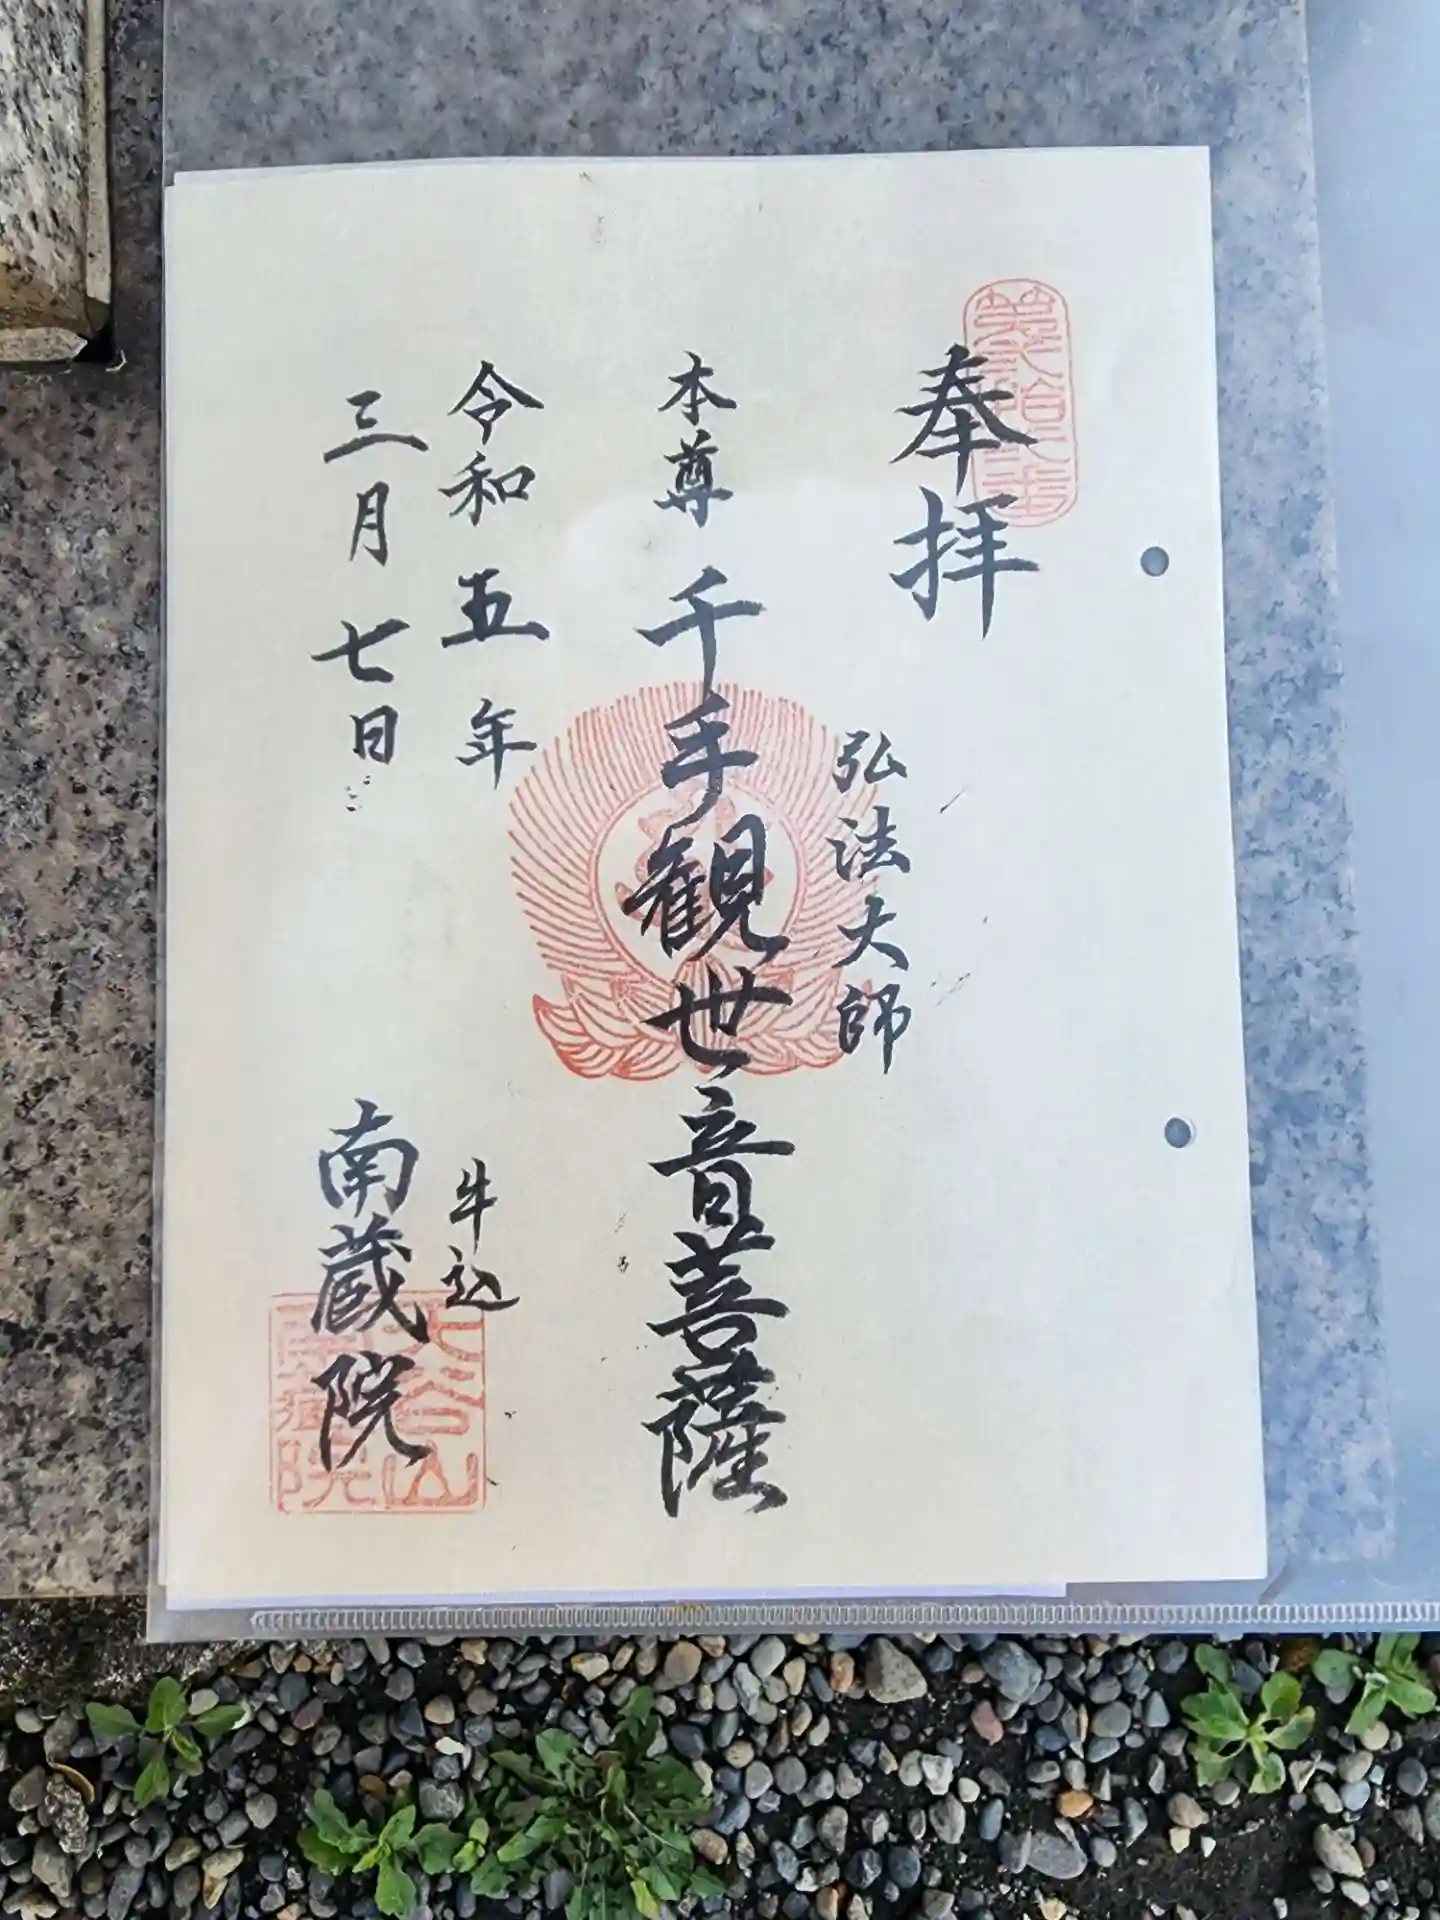 奉拝
弘法大師
本尊 千手観世音菩薩
令和五年
三月七日
牛込
南蔵院
大谷山
南蔵院